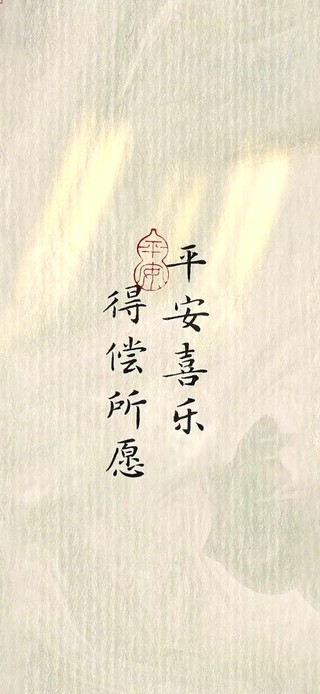 平安喜乐
得偿所愿
平安